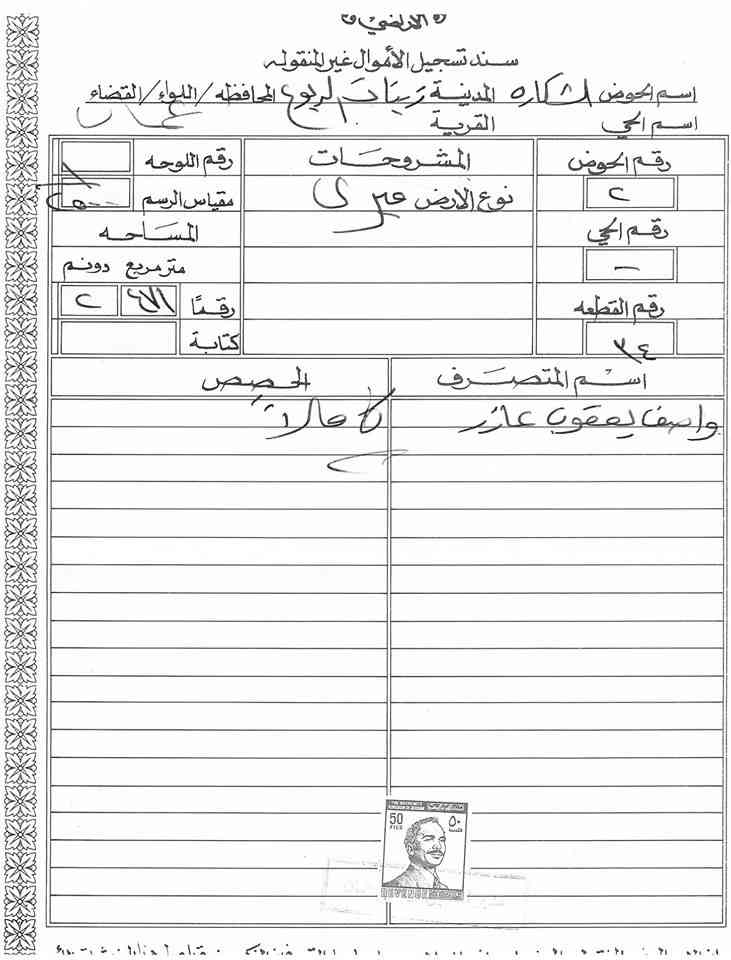 « الاراضي »
سند تسجيل الأموال غير المنقوله
اسم الحوض الشكاره المدينة المحافظه / اللواء / القضاء
اسم الحي القرية عمان
رقم الحوض المشروحات رقم اللوحه
٢ نوع الارض ميري مقياس الرسم
رقم الحي المساحه
- متر مربع دونم
رقم القطعه رقمًا ٢
٣٤ كتابة
اسم المتصرف الحصص
واصف يعقوب عازر كاملاً
50 ٥٠
FILS فلسا
REVENUE